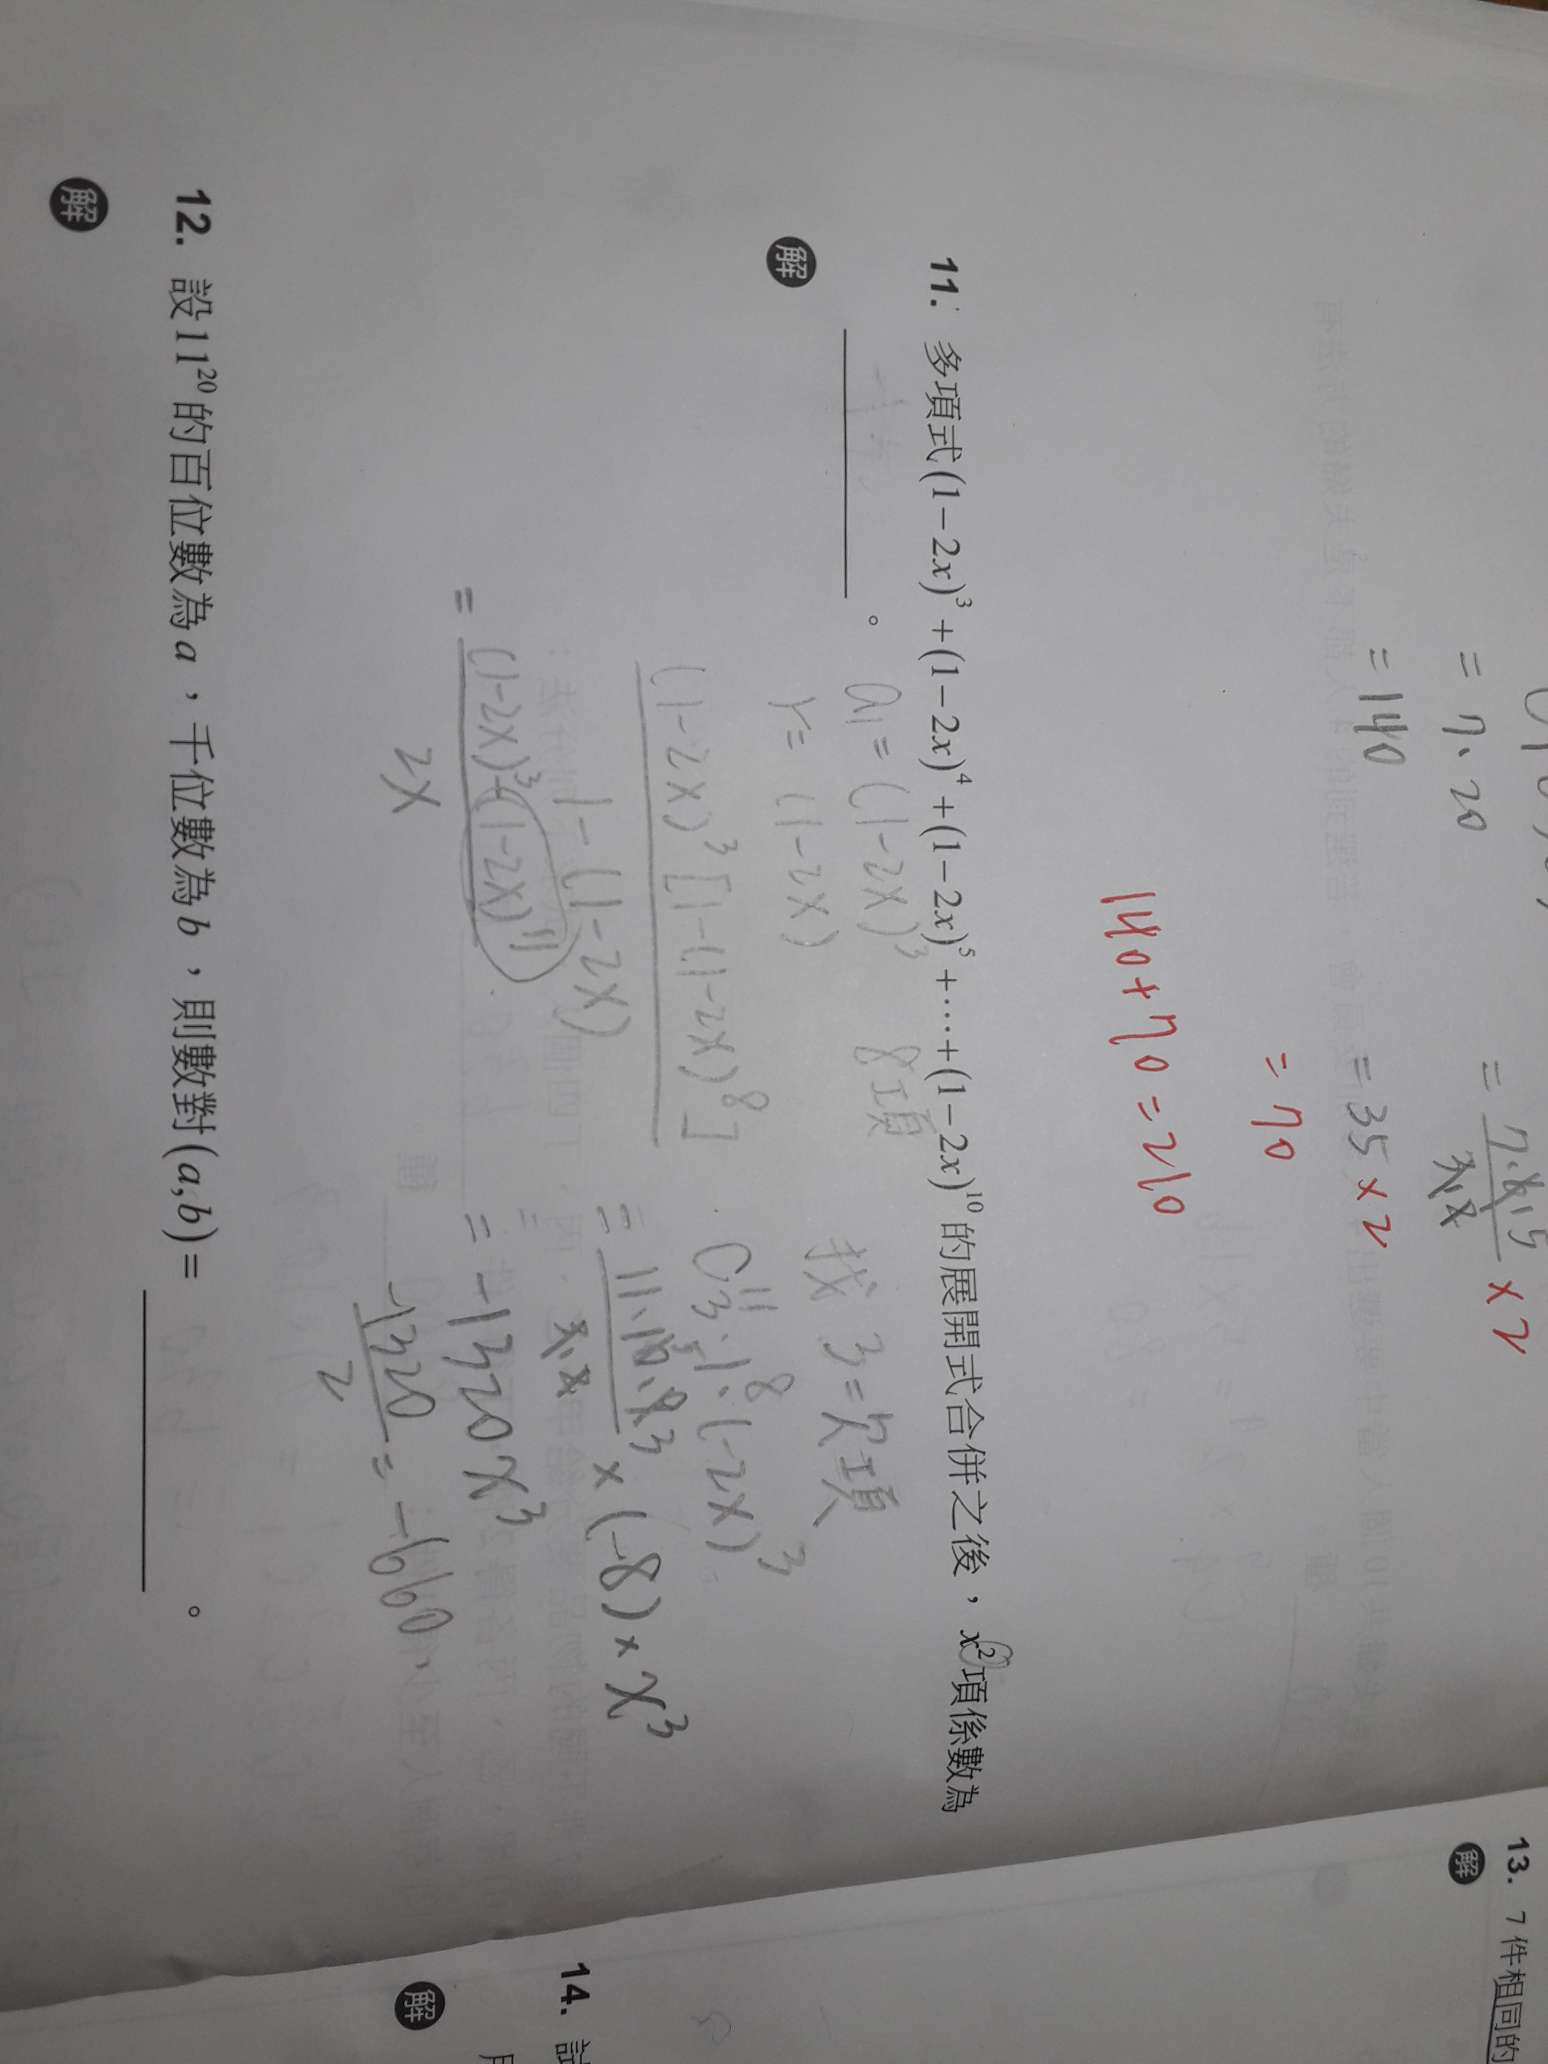 = 7.20
= 140
= 35 × 2
= 70
140+70=210
11. 多項式(1−2x)³+(1−2x)⁴+(1−2x)⁵+⋯+(1−2x)¹⁰的展開式合併之後，x²項係數為
。
解
a₁=(1-2x)³ 8項
r=(1-2x)
(1-2x)³[1-(1-2x)⁸]
1-(1-2x)
= (1-2x)³-(1-2x)¹¹
2x
找 3=次項
C¹¹₃·1⁸·(-2x)³
× (-8) × x³
= -1320x³
-1320
2
= -660
12. 設11²⁰的百位數為a，千位數為b，則數對(a,b)= 。
解
13. 7件相同的
解
14.
解